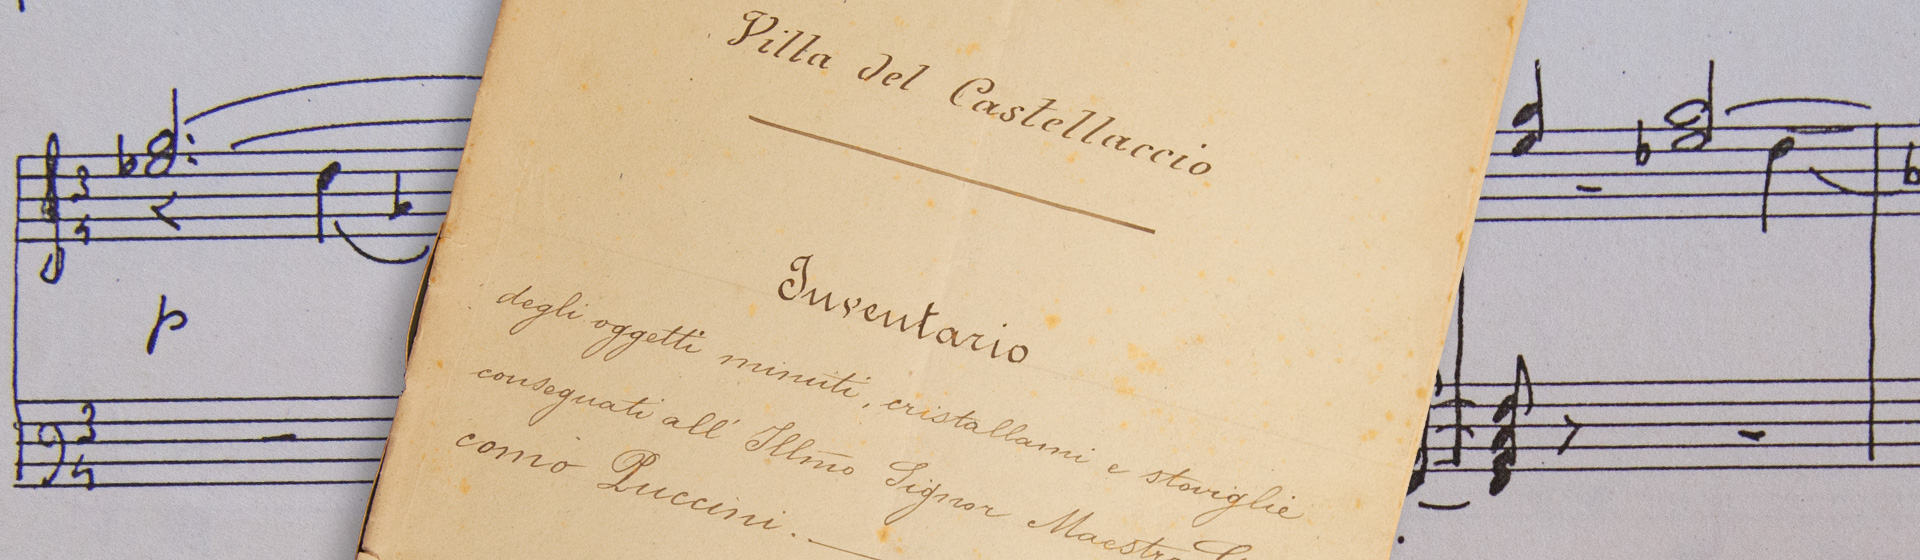 Villa del Castellaccio
Inventario
degli oggetti minuti, cristallami e stoviglie
consegnati all' Illmo Signor Maestro
como Puccini.
3
4
3
4
p